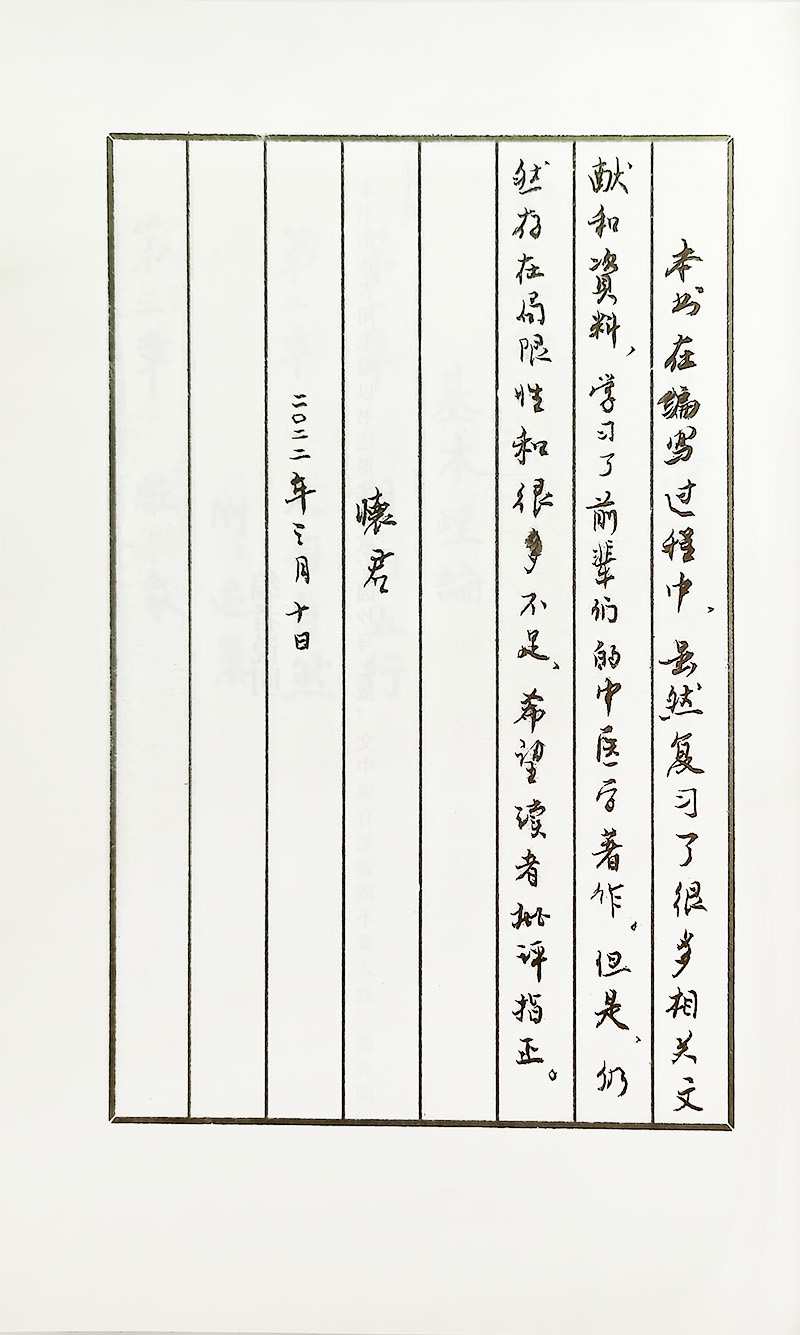 本书在编写过程中、虽然复习了很多相关文
献和資料，学习了前辈们的中医学著作。但是、仍
然存在局限性和很多不足、希望读者批评指正。
懐君
二〇二二年三月十日